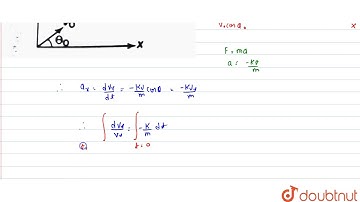 v₀
θ₀
x
V₀ cos θ₀
x
F = ma
a = -kv/m
∴ aₓ = dvₓ/dt = -kv/m cos θ = -kvₓ/m
∴ ∫ dvₓ/vₓ = ∫ -k/m dt
t=0
doubtnut